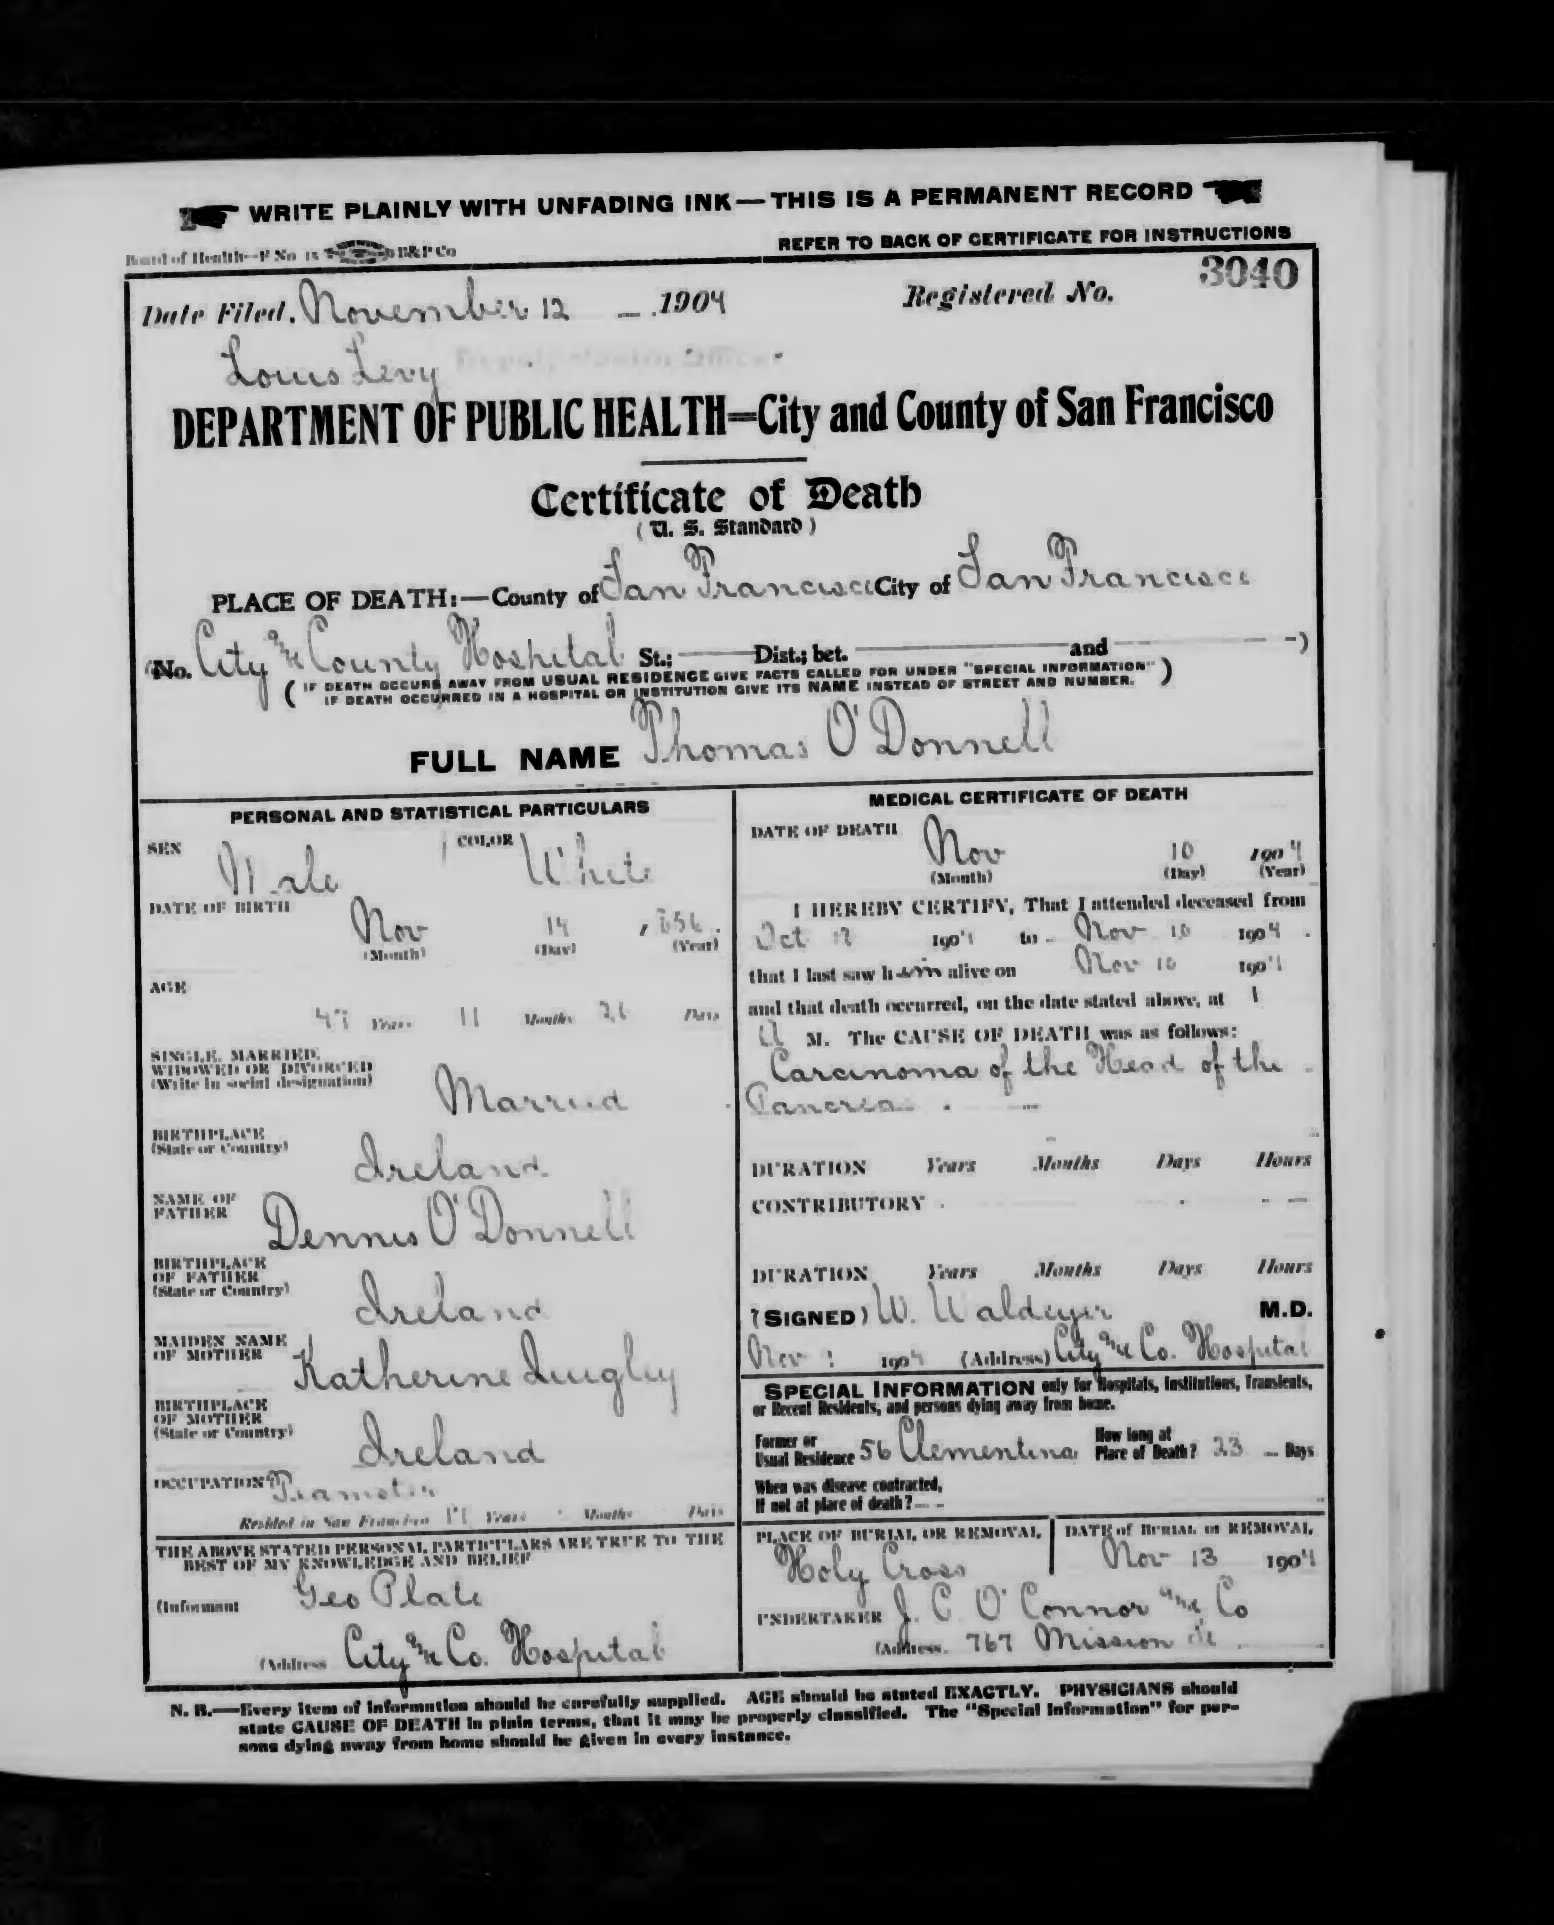 WRITE PLAINLY WITH UNFADING INK—THIS IS A PERMANENT RECORD
Board of Health—F No 15 B&P Co
REFER TO BACK OF CERTIFICATE FOR INSTRUCTIONS
Date Filed. November 12 1904 Registered No. 3040
Louis Levy
DEPARTMENT OF PUBLIC HEALTH=City and County of San Francisco
Certificate of Death
(U. S. Standard)
PLACE OF DEATH:—County of San Francisco City of San Francisco
(No. City and County Hospital St.; Dist.; bet. and )
( IF DEATH OCCURS AWAY FROM USUAL RESIDENCE GIVE FACTS CALLED FOR UNDER "SPECIAL INFORMATION" )
IF DEATH OCCURRED IN A HOSPITAL OR INSTITUTION GIVE ITS NAME INSTEAD OF STREET AND NUMBER.
FULL NAME Thomas O'Donnell
PERSONAL AND STATISTICAL PARTICULARS
SEX Male COLOR White
DATE OF BIRTH Nov 14 , 856
(Month) (Day) (Year)
AGE
47 Years 11 Months 26 Days
SINGLE, MARRIED,
WIDOWED OR DIVORCED
(Write in social designation) Married
BIRTHPLACE
(State or Country) Ireland
NAME OF
FATHER Dennis O'Donnell
BIRTHPLACE
OF FATHER
(State or Country) Ireland
MAIDEN NAME
OF MOTHER Katherine Quigley
BIRTHPLACE
OF MOTHER
(State or Country) Ireland
OCCUPATION Teamster
Resided in San Francisco Years Months Days
THE ABOVE STATED PERSONAL PARTICULARS ARE TRUE TO THE
BEST OF MY KNOWLEDGE AND BELIEF
(Informant Geo Plate
(Address City and Co. Hospital
MEDICAL CERTIFICATE OF DEATH
DATE OF DEATH Nov 10 1904
(Month) (Day) (Year)
I HEREBY CERTIFY, That I attended deceased from
Oct 1904 to Nov 10 1904
that I last saw him alive on Nov 10 1904
and that death occurred, on the date stated above, at 1
A M. The CAUSE OF DEATH was as follows:
Carcinoma of the Head of the
Pancreas
DURATION Years Months Days Hours
CONTRIBUTORY
DURATION Years Months Days Hours
(SIGNED) W. Waldeyer M.D.
Nov 1904 (Address) City and Co. Hospital
SPECIAL INFORMATION only for Hospitals, Institutions, Transients,
or Recent Residents, and persons dying away from home.
Former or
Usual Residence 56 Clementina How long at
Place of Death? 23 Days
When was disease contracted,
If not at place of death?
PLACE OF BURIAL OR REMOVAL Holy Cross
DATE of BURIAL or REMOVAL Nov 13 1904
UNDERTAKER J. C. O'Connor and Co
(Address. 767 Mission St
N. B.—Every item of information should be carefully supplied. AGE should be stated EXACTLY. PHYSICIANS should
state CAUSE OF DEATH in plain terms, that it may be properly classified. The "Special Information" for per-
sons dying away from home should be given in every instance.